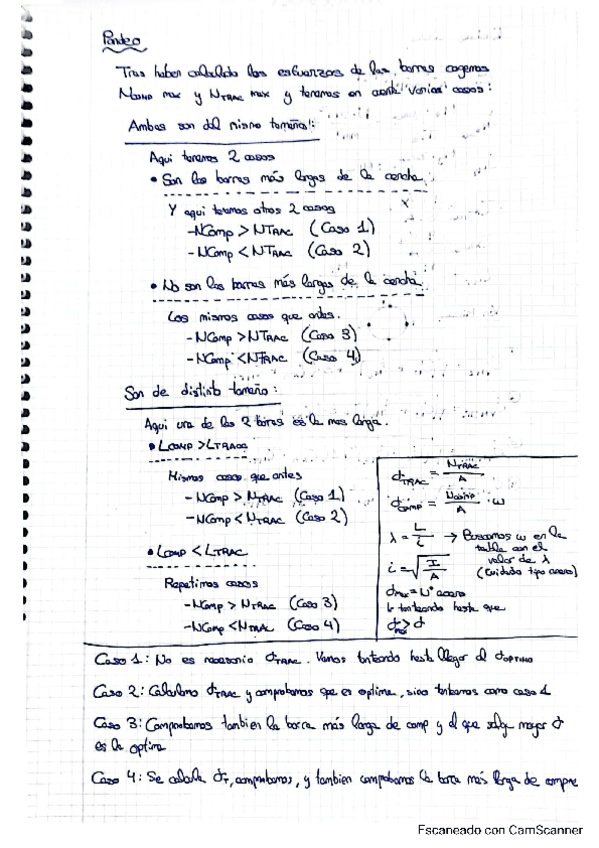 Pandeo
Tras haber calculado los esfuerzos de las barras cogemos
Ncomp max y NTRAC max y tenemos en cuenta varios casos:
Ambas son del mismo tamaño:
Aqui tenemos 2 casos
• Son las barras más largas de la cercha
Y aqui tenemos otros 2 casos
- NComp > NTRAC (Caso 1)
- NComp < NTRAC (Caso 2)
• No son las barras más largas de la cercha
Los mismos casos que antes.
- NComp > NTRAC (Caso 3)
- NComp < NTRAC (Caso 4)
Son de distinto tamaño:
Aqui una de las 2 barras es la mas larga.
• LCOMP > LTRACC
Mismos casos que antes
- NComp > NTRAC (Caso 1)
- NComp < NTRAC (Caso 2)
• LCOMP < LTRAC
Repetimos casos
- NComp > NTRAC (Caso 3)
- NComp < NTRAC (Caso 4)
σTRAC = NTRAC / A
σCOMP = NCOMP / A · ω
λ = L / i → Buscamos ω en la
tabla con el
valor de λ
(Cuidado tipo acero)
i = √(I / A)
σmax = Nº acero
tanteando hasta que
σmax > σ
Caso 1: No es necesario σTRAC. Vamos tanteando hasta llegar al σOPTIMO
Caso 2: Calculamos σTRAC y comprobamos que es optima, sino tanteamos como caso 1
Caso 3: Comprobamos tambien la barra más larga de comp y el que salga mayor σ
es la optima
Caso 4: Se calcula σT, comprobamos, y tambien comprobamos la barra más larga de compre
Escaneado con CamScanner